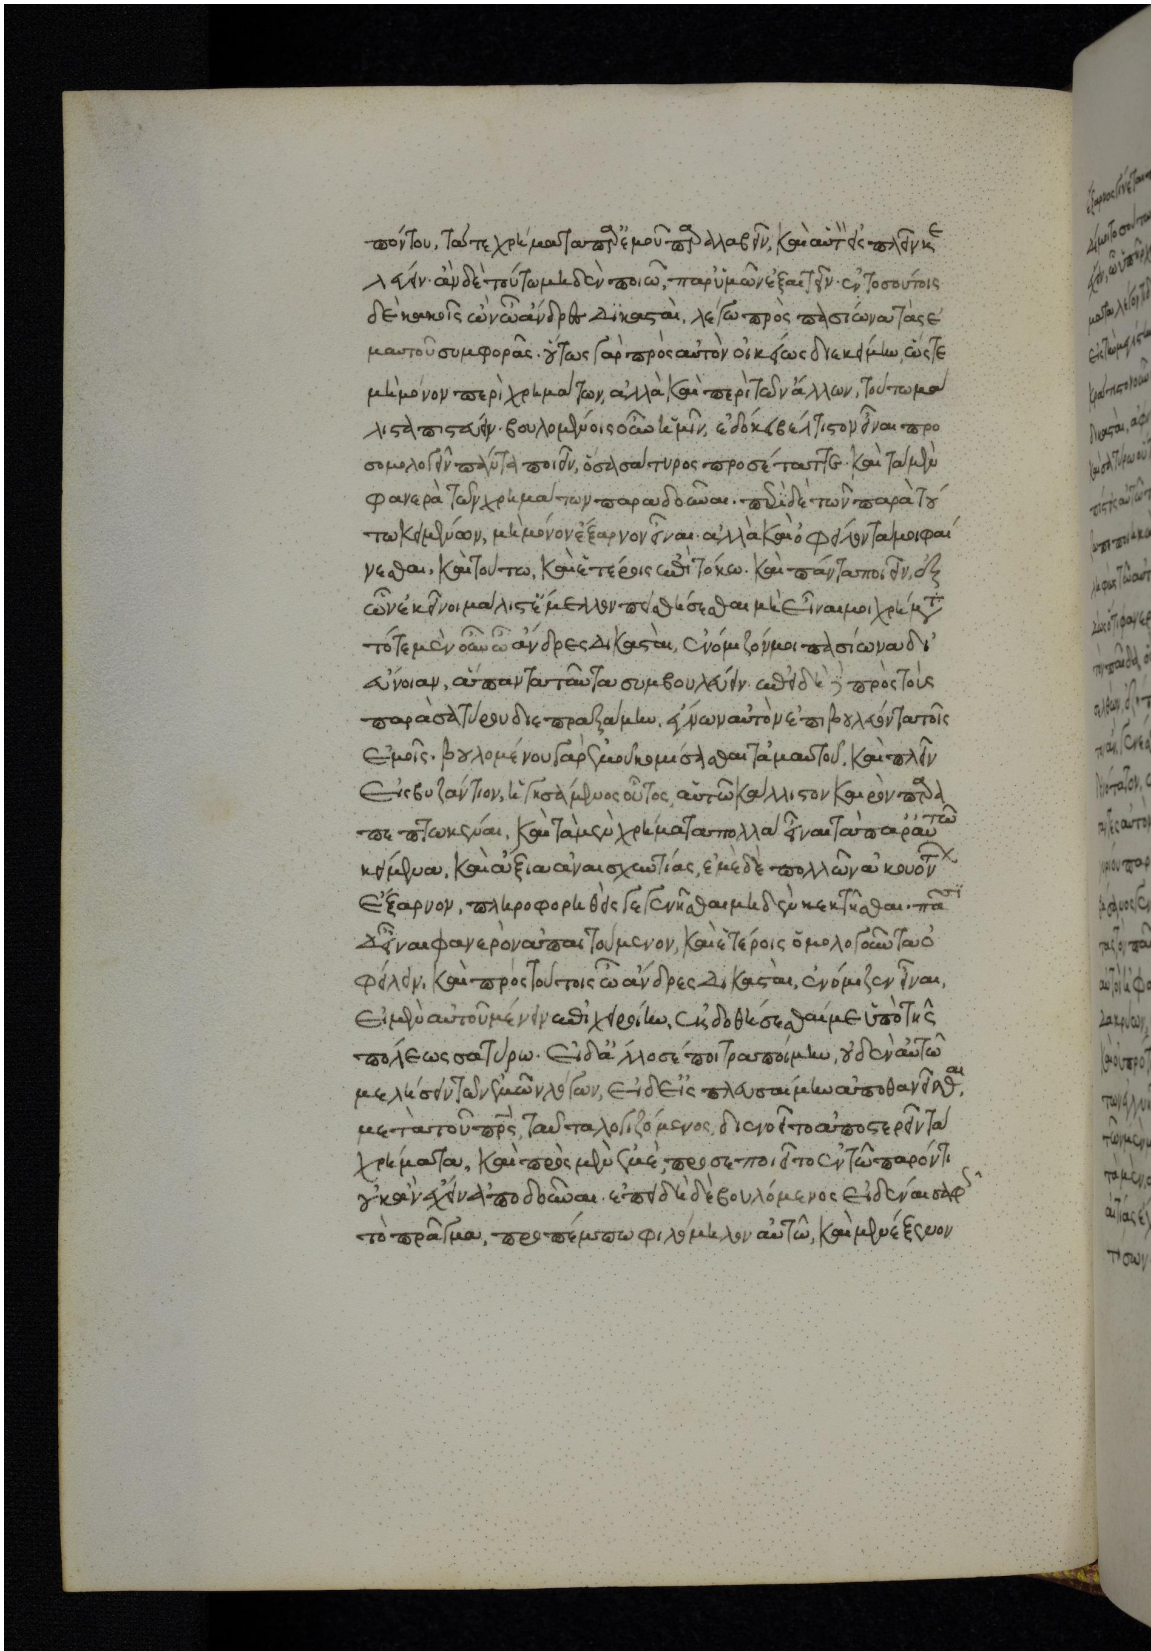 πόντου, τά τε χρήματα παρ' ἐμοῦ παραλαβεῖν, καὶ αὐτὸν εἰσπλεῖν κε
λεύειν· ἂν δὲ τούτω μηδὲν ποιῶ, παρ' ὑμῶν ἐξαιτεῖν· ἐν τοσούτοις
δὲ κακοῖς ὢν ὦ ἄνδρες δικασταὶ, λέγω πρὸς πασίωνα τὰς ἐ
μαυτοῦ συμφοράς· οὕτως γὰρ πρὸς αὐτὸν οἰκείως διεκείμην, ὥστε
μὴ μόνον περὶ χρημάτων, ἀλλὰ καὶ περὶ τῶν ἄλλων, τούτω μά
λιστα πιστεύειν· βουλομένοις οὖν ἡμῖν, ἐδόκει βέλτιστον εἶναι προ
σομολογεῖν πάντα ποιεῖν, ὅσα σάτυρος προσέταττε· καὶ τὰ μὲν
φανερὰ τῶν χρημάτων παραδοῦναι· περὶ δὲ τῶν παρὰ τού
τω κειμένων, μὴ μόνον ἔξαρνον εἶναι· ἀλλὰ καὶ ὀφείλοντά με φαί
νεσθαι, καὶ τούτω, καὶ ἑτέροις ἐπὶ τόκω· καὶ πάντα ποιεῖν, ἐξ
ὧν ἐκεῖνοι μάλιστ' ἔμελλον πεισθήσεσθαι μὴ εἶναί μοι χρήματα·
τότε μὲν οὖν ὦ ἄνδρες δικασταὶ, ἐνόμιζόν μοι πασίωνα δι'
εὔνοιαν, ἅπαντα ταῦτα συμβουλεύειν· ἐπειδὴ δὲ πρὸς τοὺς
παρὰ σατύρου διεπραξάμην, ἔγνων αὐτὸν ἐπιβουλεύοντα τοῖς
ἐμοῖς· βουλομένου γὰρ ἐμοῦ κομίσασθαι τἀμαυτοῦ, καὶ πλεῖν
εἰς βυζάντιον, ἡγησάμενος οὗτος, αὐτῷ κάλλιστον καιρὸν παρα
πεπτωκέναι, καὶ τὰ μὲν χρήματα πολλὰ εἶναι τὰ παρ' αὐτῷ
κείμενα, καὶ ἄξια ἀναισχυντίας, ἐμὲ δὲ πολλῶν ἀκουόντων
ἔξαρνον, πληροφορηθεὶς γεγενῆσθαι μηδὲν κεκτῆσθαι· πᾶσί
δ' εἶναι φανερὸν ἀπαιτούμενον, καὶ ἑτέροις ὁμολογοῦντα ὀ
φείλειν, καὶ πρὸς τούτοις ὦ ἄνδρες δικασταὶ, ἐνόμιζεν εἶναι,
εἰ μὲν αὐτοῦ μένειν ἐπιχειροίην, ἐκδοθήσεσθαί με ὑπὸ τῆς
πόλεως σατύρω· εἰ δ' ἄλλοσέ ποι τραποίμην, οὐδὲν αὐτῷ
μελήσειν τῶν ἐμῶν λόγων, εἰ δ' εἰσπλευσαίμην ἀποθανεῖσθαι,
μετὰ τοῦ πατρός, ταῦτα λογιζόμενος, διενοεῖτο ἀποστερεῖν τὰ
χρήματα, καὶ πρὸς μὲν ἐμέ, προσεποιεῖτο ἐν τῷ παρόντι
οὐκ ἂν ἔχειν ἀποδοῦναι· ἐπειδὴ δὲ βουλόμενος εἰδέναι σαφῶς
τὸ πρᾶγμα, προπέμπω φιλόμηλον αὐτῷ, καὶ μενέξενον